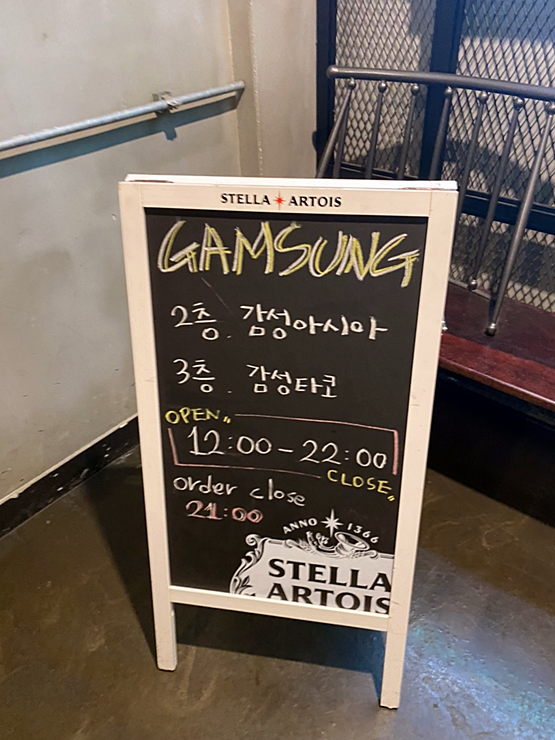 STELLA ARTOIS
GAMSUNG
2층. 감성아시아
3층. 감성타코
OPEN
12:00 - 22:00
CLOSE
order close
21:00
ANNO 1366
STELLA
ARTOIS